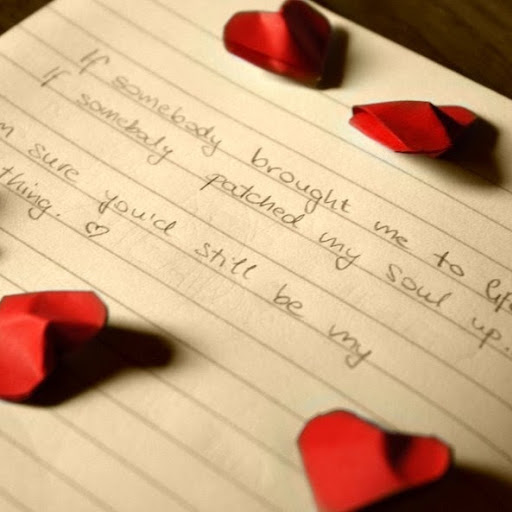 If somebody brought me to life
If somebody patched my soul up.
m sure you'd still be my
thing. ♡